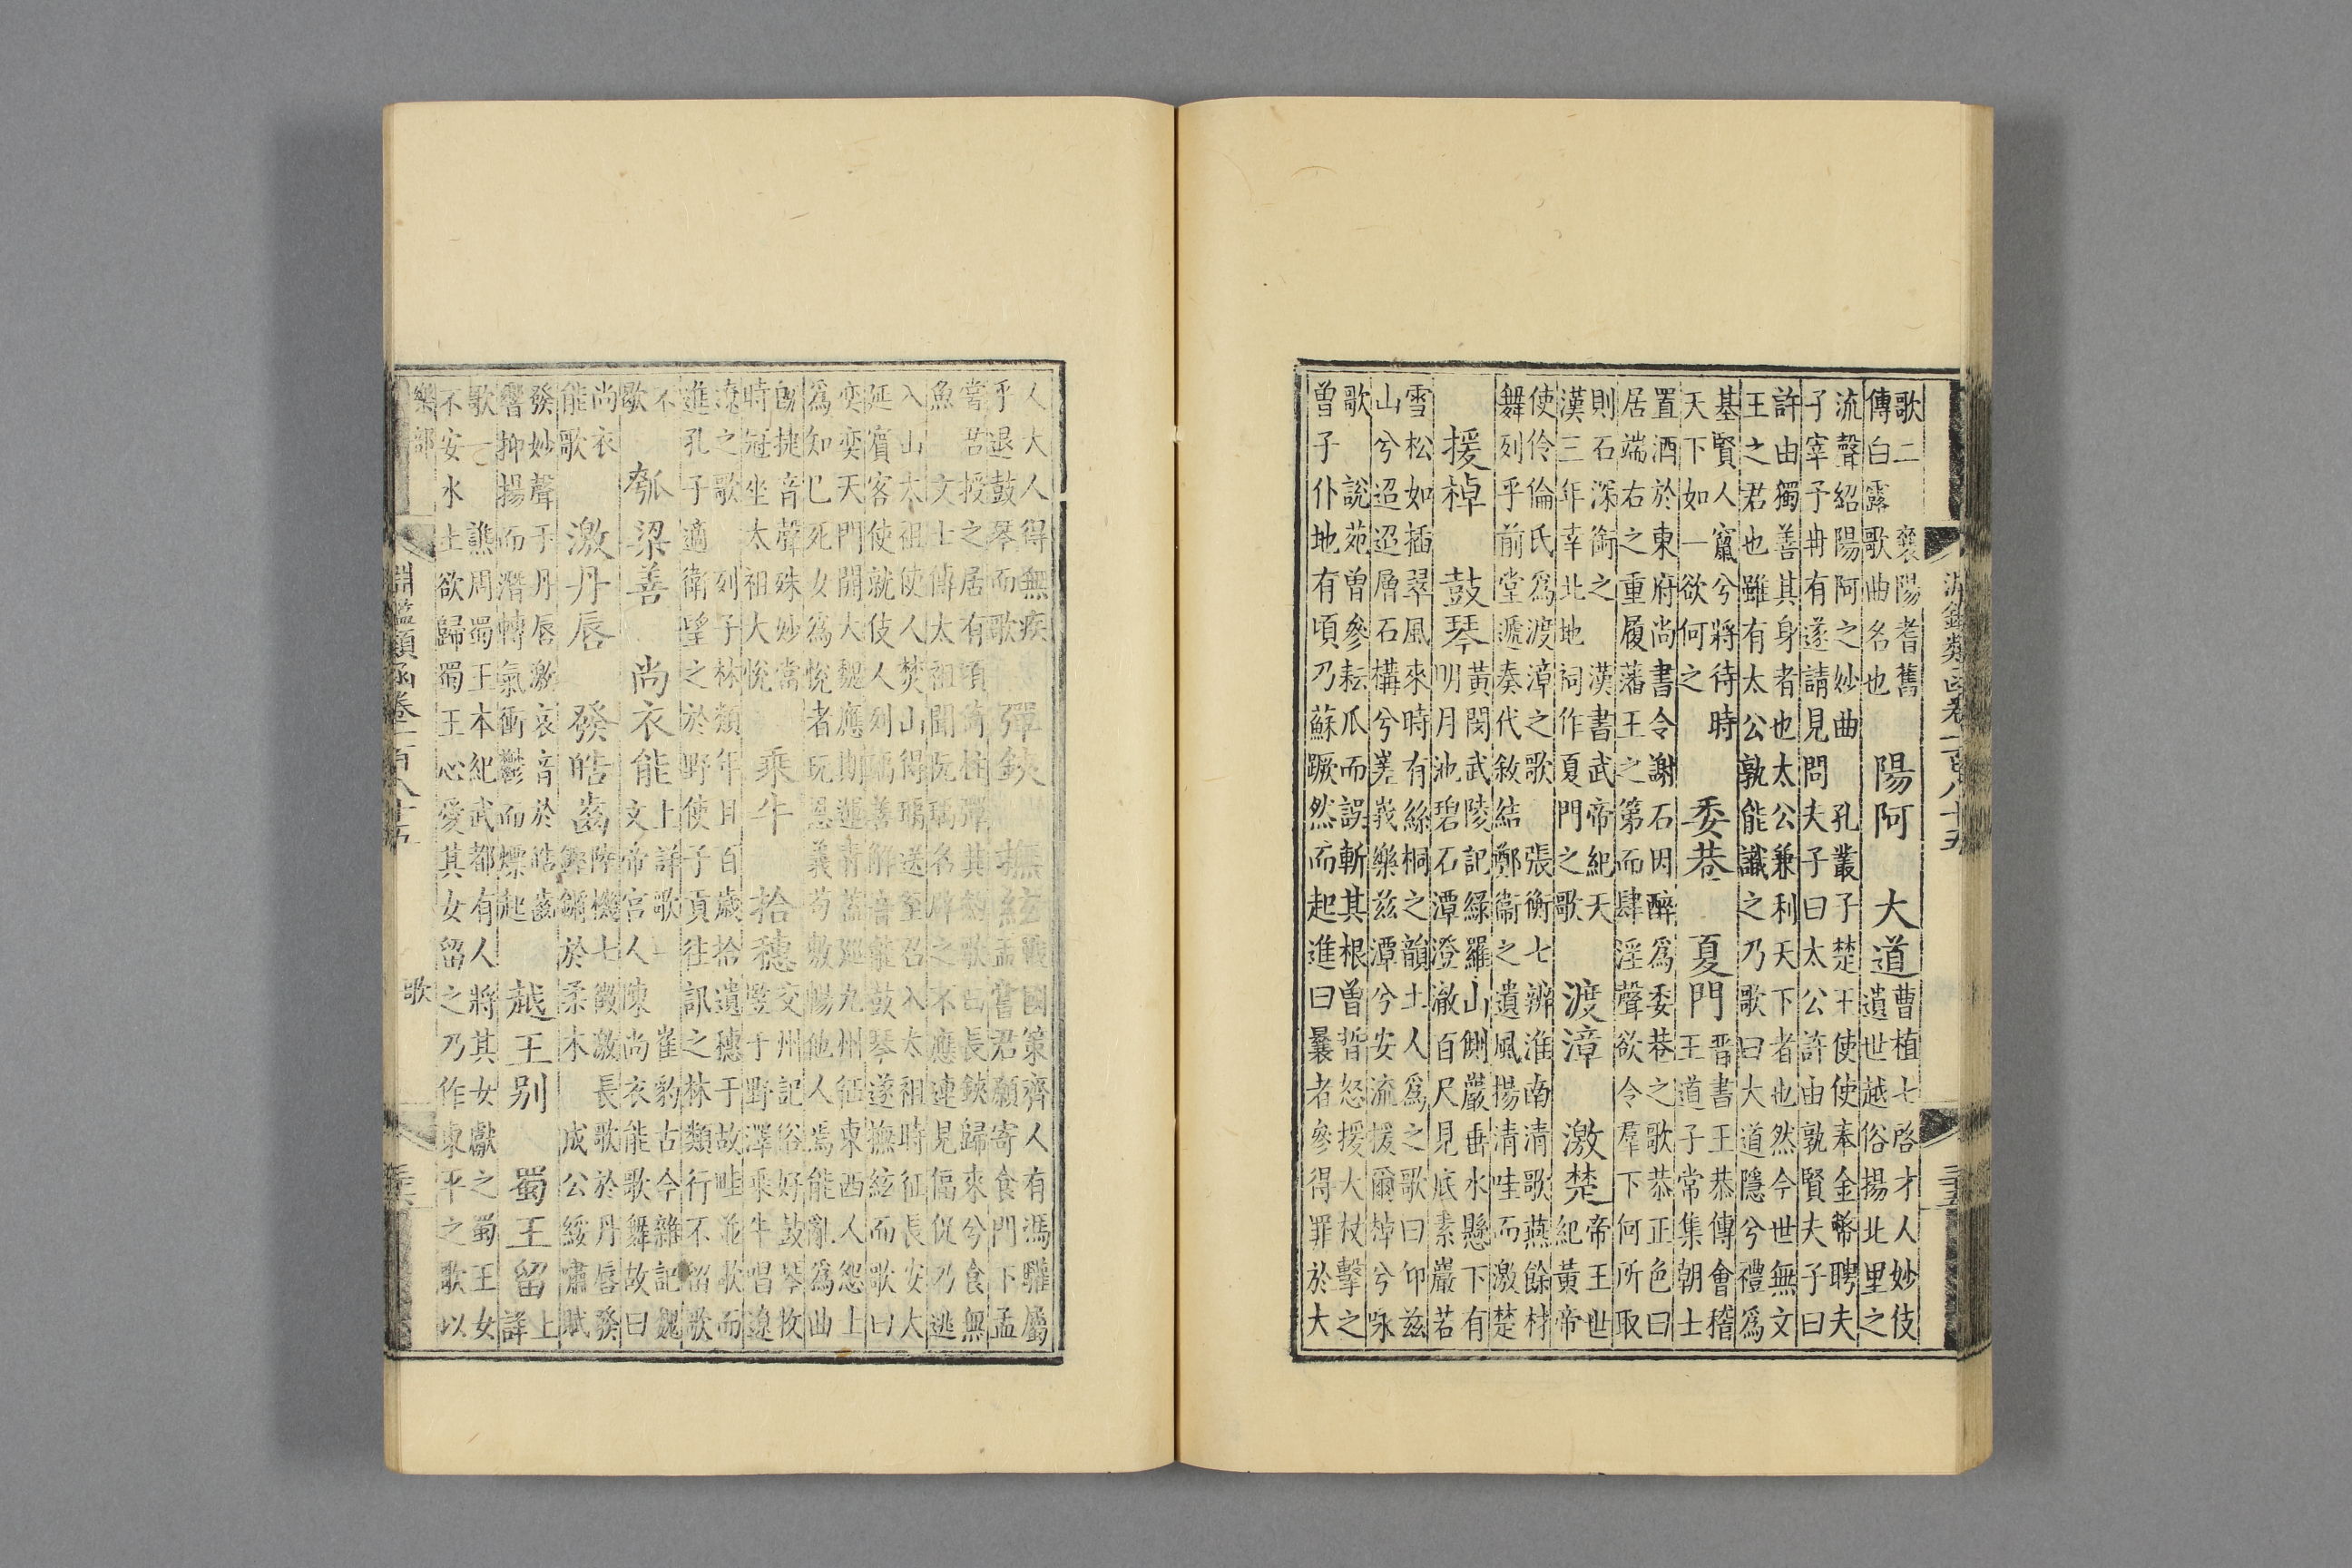 淵鑑類函卷一百八十五 三十五
歌二 襄陽耆舊
傳白露歌曲名也
陽阿 大道
曹植七啓才人妙伎
遺世越俗揚北里之
流聲紹陽阿之妙曲 孔叢子楚王使使奉金幣聘夫
子宰予冉有遂請見問夫子曰太公許由孰賢夫子曰
許由獨善其身者也太公兼利天下者也然今世無文
王之君也雖有太公孰能識之乃歌曰大道隱兮禮爲
基賢人竄兮將待時
天下如一欲何之
委巷 夏門
晋書王恭傳會稽
王道子常集朝士
置酒於東府尚書令謝石因醉爲委巷之歌恭正色曰
居端右之重履藩王之第而肆淫聲欲令羣下何所取
則石深銜之 漢書武帝紀天
漢三年幸北地祠作夏門之歌
渡漳 激楚
帝王世
紀黃帝
使伶倫氏爲渡漳之歌 張衡七辨淮南清歌燕餘材
舞列乎前堂遞奏代敘結鄭衞之遺風揚清哇而激楚
援棹 鼓琴
黃閔武陵記綠羅山側巖垂水懸下有
明月池碧石潭澄澈百尺見底素巖若
雪松如插翠風來時有絲桐之韻土人爲之歌曰仰兹
山兮迢迢層石構兮嵳峩樂兹潭兮安流援爾棹兮咏
歌 說苑曾參耘瓜而誤斬其根曾晳怒援大杖擊之
曾子仆地有頃乃蘇蹶然而起進曰曩者參得罪於大
人大人得無疾
乎退鼓琴而歌
彈鋏 撫絃
戰國策齊人有馮驩屬
孟嘗君願寄食門下孟
嘗君授之居有頃倚柱彈其劍歌曰長鋏歸來兮食無
魚 文士傳太祖聞阮瑀名辟之不應連見偪促乃逃
入山太祖使人焚山得瑀送至召入太祖時征長安大
延賓客使就伎人列瑀善解音能鼓琴遂撫絃而歌曰
奕奕天門開大魏應期運青蓋巡九州征東西人怨上
爲知已死女爲悅者玩恩義茍敷暢他人焉能亂爲曲
旣捷音聲殊妙當
時冠坐太祖大悅
乘牛 拾穗
交州記俗好鼓琴牧
豎于野澤乘牛唱遼
遼之歌 列子林類年且百歲拾遺穗于故畦並歌而
進孔子適衛望之於野使子貢往訊之林類行不留歌
不
歇
瓠梁善 尚衣能
上詳歌一 崔豹古今雜記魏
文帝宮人陳尚衣能歌舞故曰
尚衣
能歌
激丹唇 發皓齒
陸機七徵激長歌於丹唇發
舞鏑於柔木 成公綏嘯賦
發妙聲于丹唇激哀音於皓齒
響抑揚而潛轉氣衝鬱而熛起
越王别 蜀王留
上
詳
歌一 譙周蜀王本紀武都有人將其女獻之蜀王女
不安水土欲歸蜀王心愛其女留之乃作東平之歌以
樂部 歌
淵鑑類函卷一百八十五 三十六